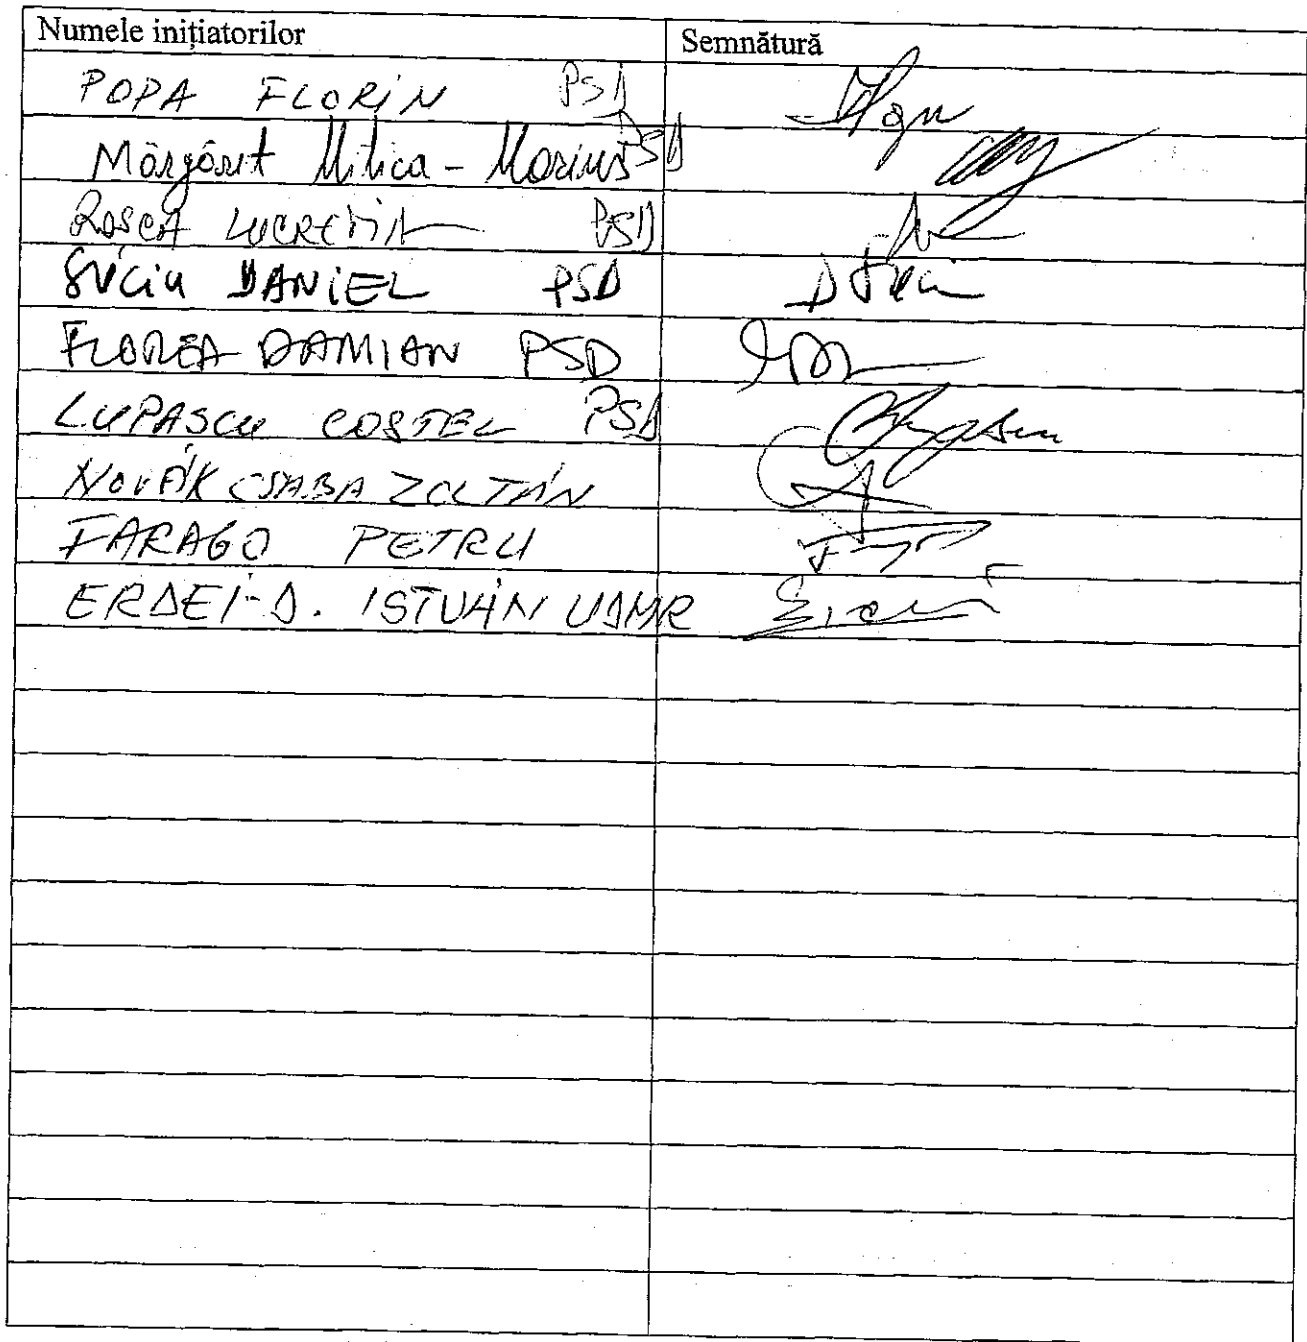 Numele inițiatorilor Semnătură
POPA FLORIN PSD
Mărgărit Mitica-Marius PSD
ROSCA LUCRETIA PSD
SUCIU DANIEL PSD
FLOREA DAMIAN PSD
LUPASCU COSTEL PSD
NOVÁK CSABA ZOLTÁN
FARAGO PETRU
ERDEI-D. ISTVÁN UDMR